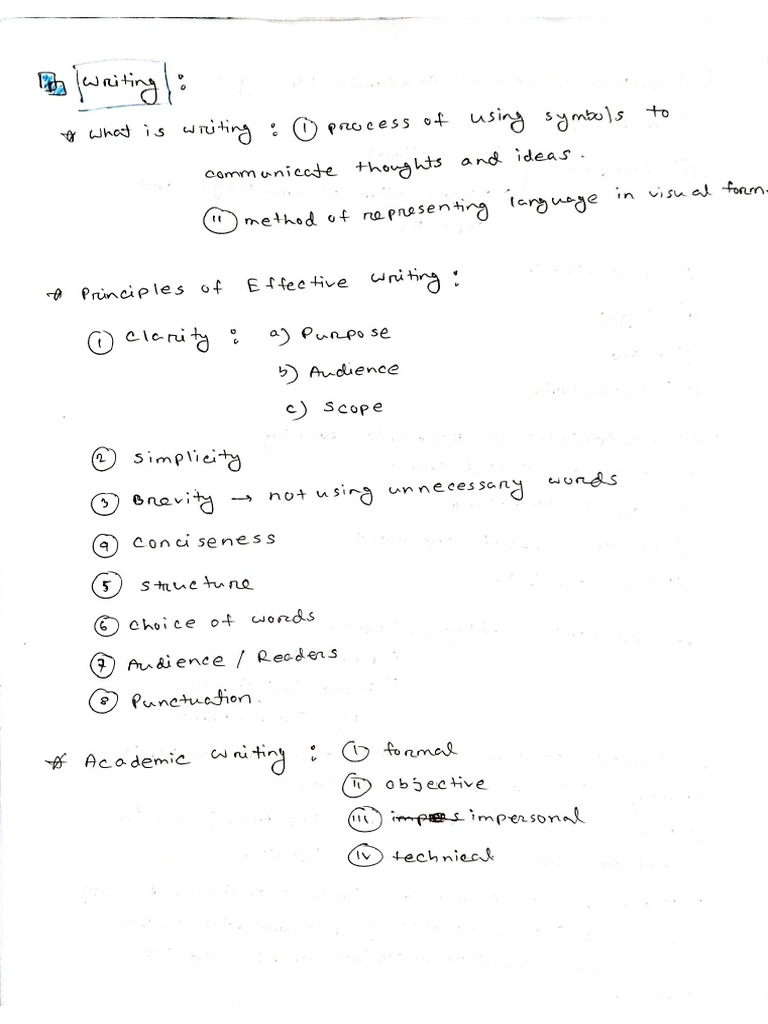 Writing :
* What is writing : (i) process of using symbols to
communicate thoughts and ideas.
(ii) method of representing language in visual form.
* Principles of Effective writing :
(1) Clarity : a) Purpose
b) Audience
c) Scope
(2) Simplicity
(3) Brevity → not using unnecessary words
(4) Conciseness
(5) Structure
(6) Choice of words
(7) Audience / Readers
(8) Punctuation.
* Academic writing : (i) formal
(ii) objective
(iii) impersonal
(iv) technical